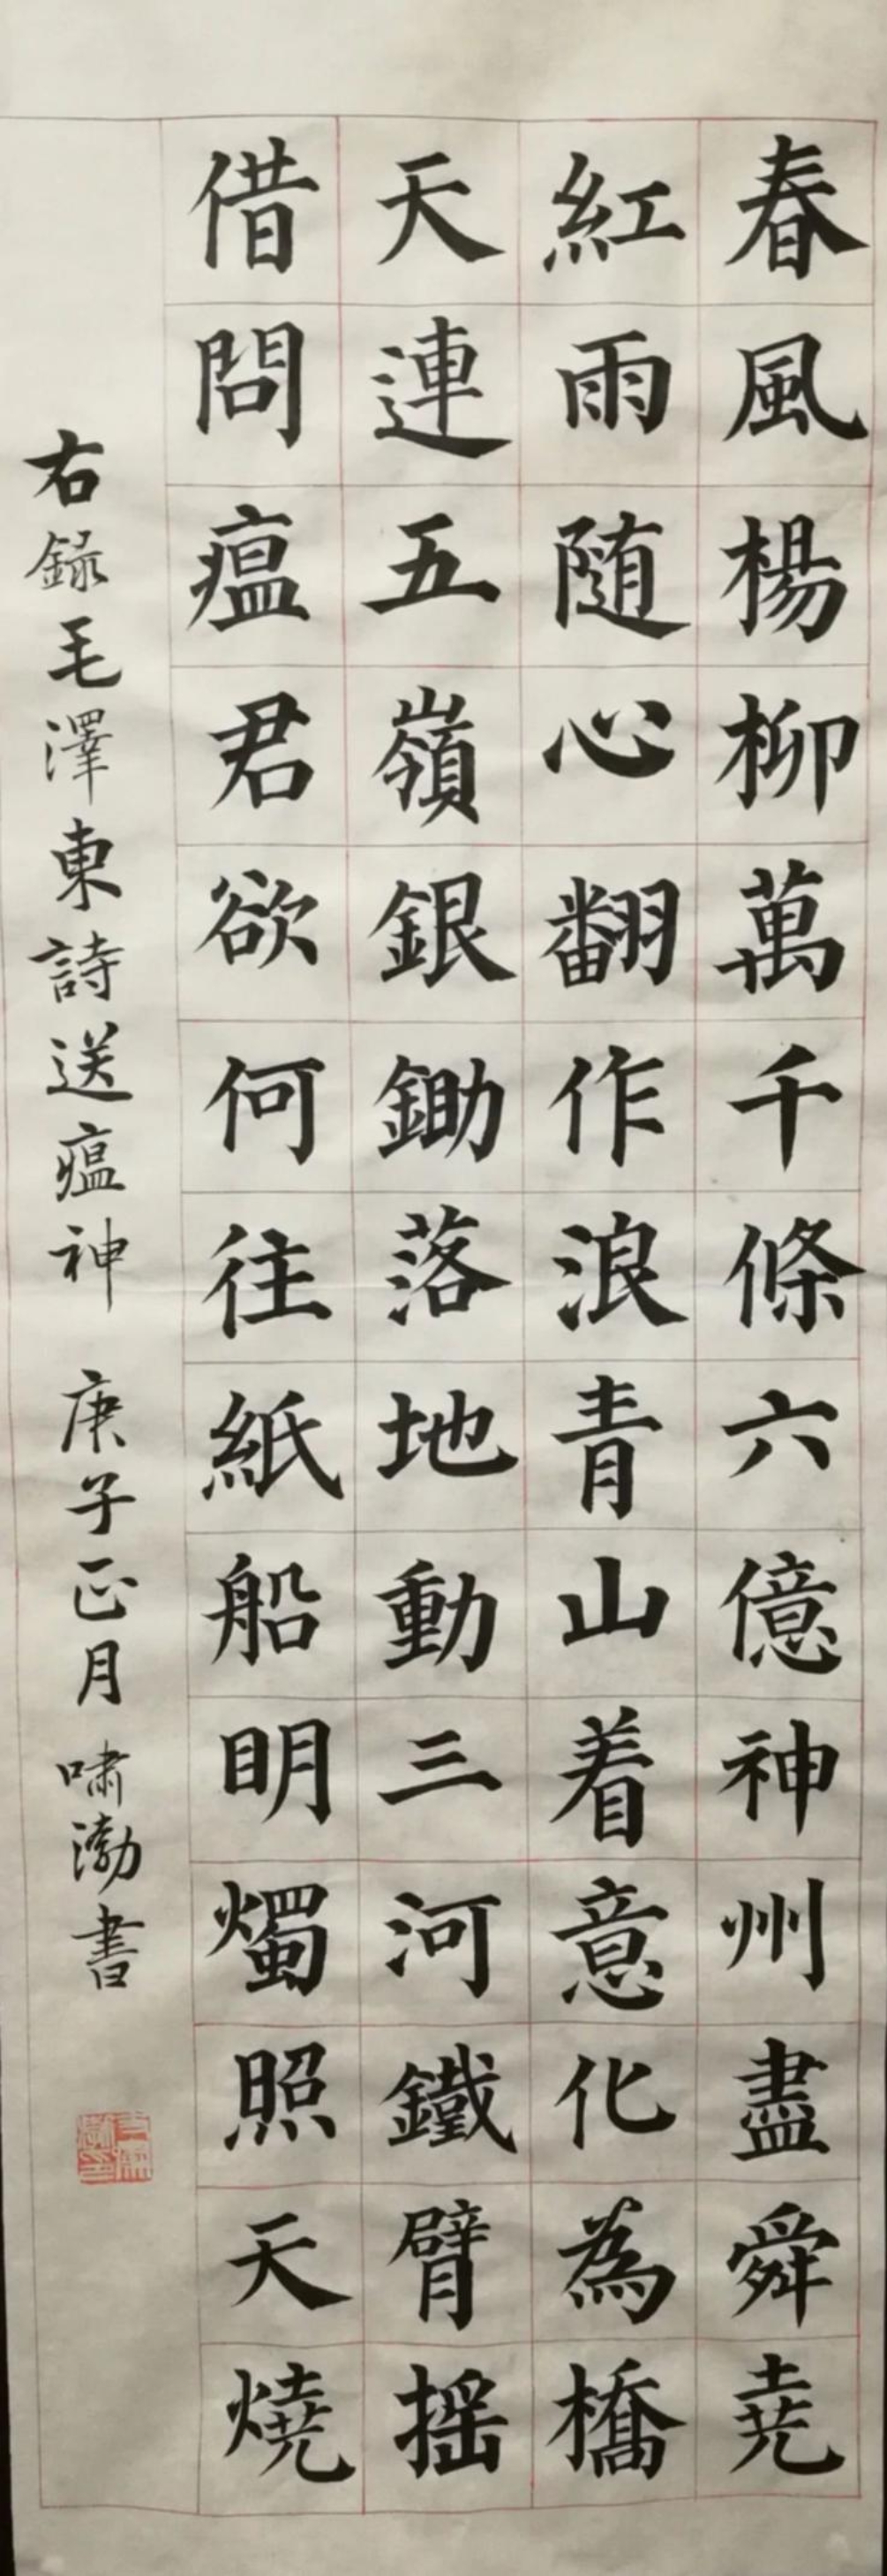 春風楊柳萬千條六億神州盡舜尭
紅雨随心翻作浪青山着意化為橋
天連五嶺銀鋤落地動三河鐵臂摇
借問瘟君欲何往紙船明燭照天燒
右錄毛澤東詩送瘟神 庚子正月 啸渤書